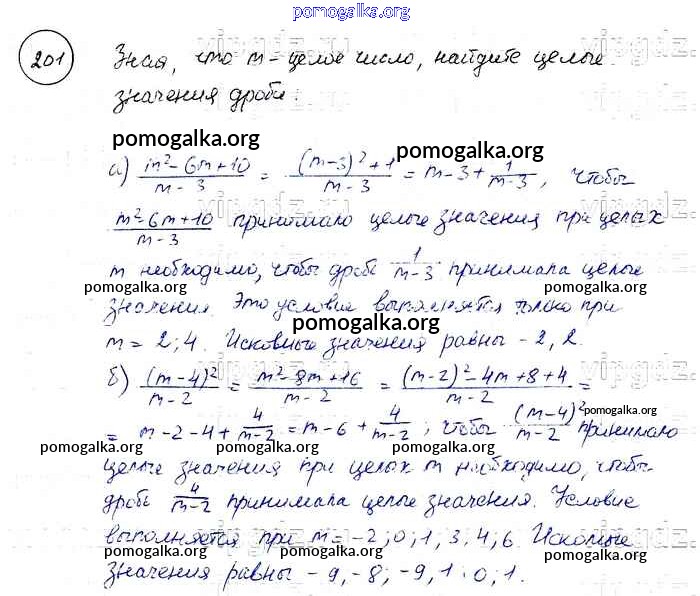 pomogalka.org
201 Зная, что m - целое число, найдите целые
значения дроби:
pomogalka.org pomogalka.org
а) (m²-6m+10)/(m-3) = ((m-3)²+1)/(m-3) = m-3+1/(m-3), чтобы
(m²-6m+10)/(m-3) принимало целые значения при целых
m необходимо, чтобы дробь 1/(m-3) принимала целые
pomogalka.org pomogalka.org
значения. Это условие выполняется только при
pomogalka.org
m = 2; 4. Искомые значения равны -2, 2.
б) (m-4)²/(m-2) = (m²-8m+16)/(m-2) = ((m-2)²-4m+8+4)/(m-2) =
= m-2-4+4/(m-2) = m-6+4/(m-2), чтобы (m-4)²/(m-2) принимало
pomogalka.org pomogalka.org pomogalka.org
целые значения при целых m необходимо, чтобы
дробь 4/(m-2) принимала целые значения. Условие
выполняется при m = -2; 0; 1, 3, 4; 6. Искомые
pomogalka.org pomogalka.org
значения равны -9, -8; -9, 1; 0; 1.